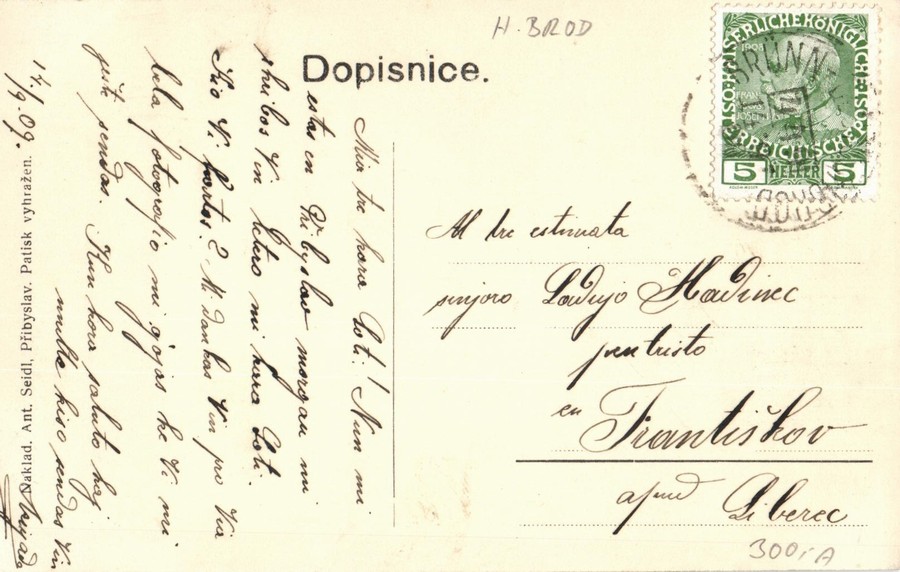 H. BROD
Dopisnice.
KAISERLICHE KÖNIGLICHE ÖSTERREICHISCHE POST
1908
FRANZ
JOSEPH I
5 HELLER 5
BRÜNN
Al tre estimata
sinjoro Ladujo Hadinec
pentristo
en
Františkov
apud Liberec
300,- A
Mia tre kara Loti! Nun mi
estas en Přibyslav morgau mi
skribos Vin letero mi kara Loti.
Kio Vi fartas? Mi dankas Vin pro Via
bela fotografio mi gojas ke Vi min
sendas. Kun kora saluto kaj
multe kiso sendas Vin
17./9. 09.
Naklad. Ant. Seidl, Přibyslav. Patisk vyhražen.